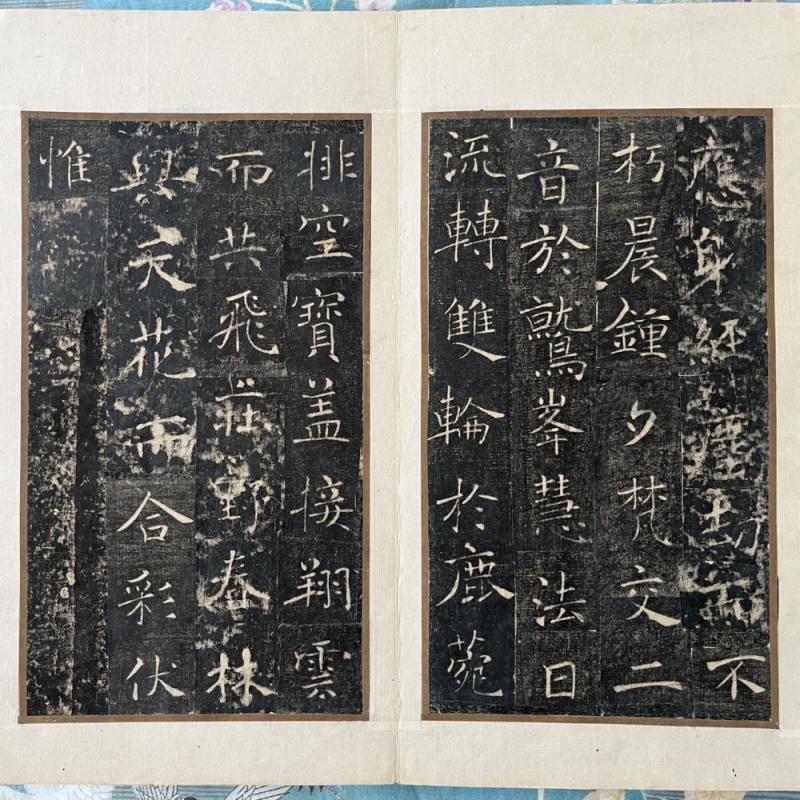 應身經塵劫而不
朽晨鍾夕梵交二
音於鷲峯慧法日
流轉雙輪於鹿菀
排空寶盖接翔雲
而共飛莊野春林
與天花而合彩伏
惟